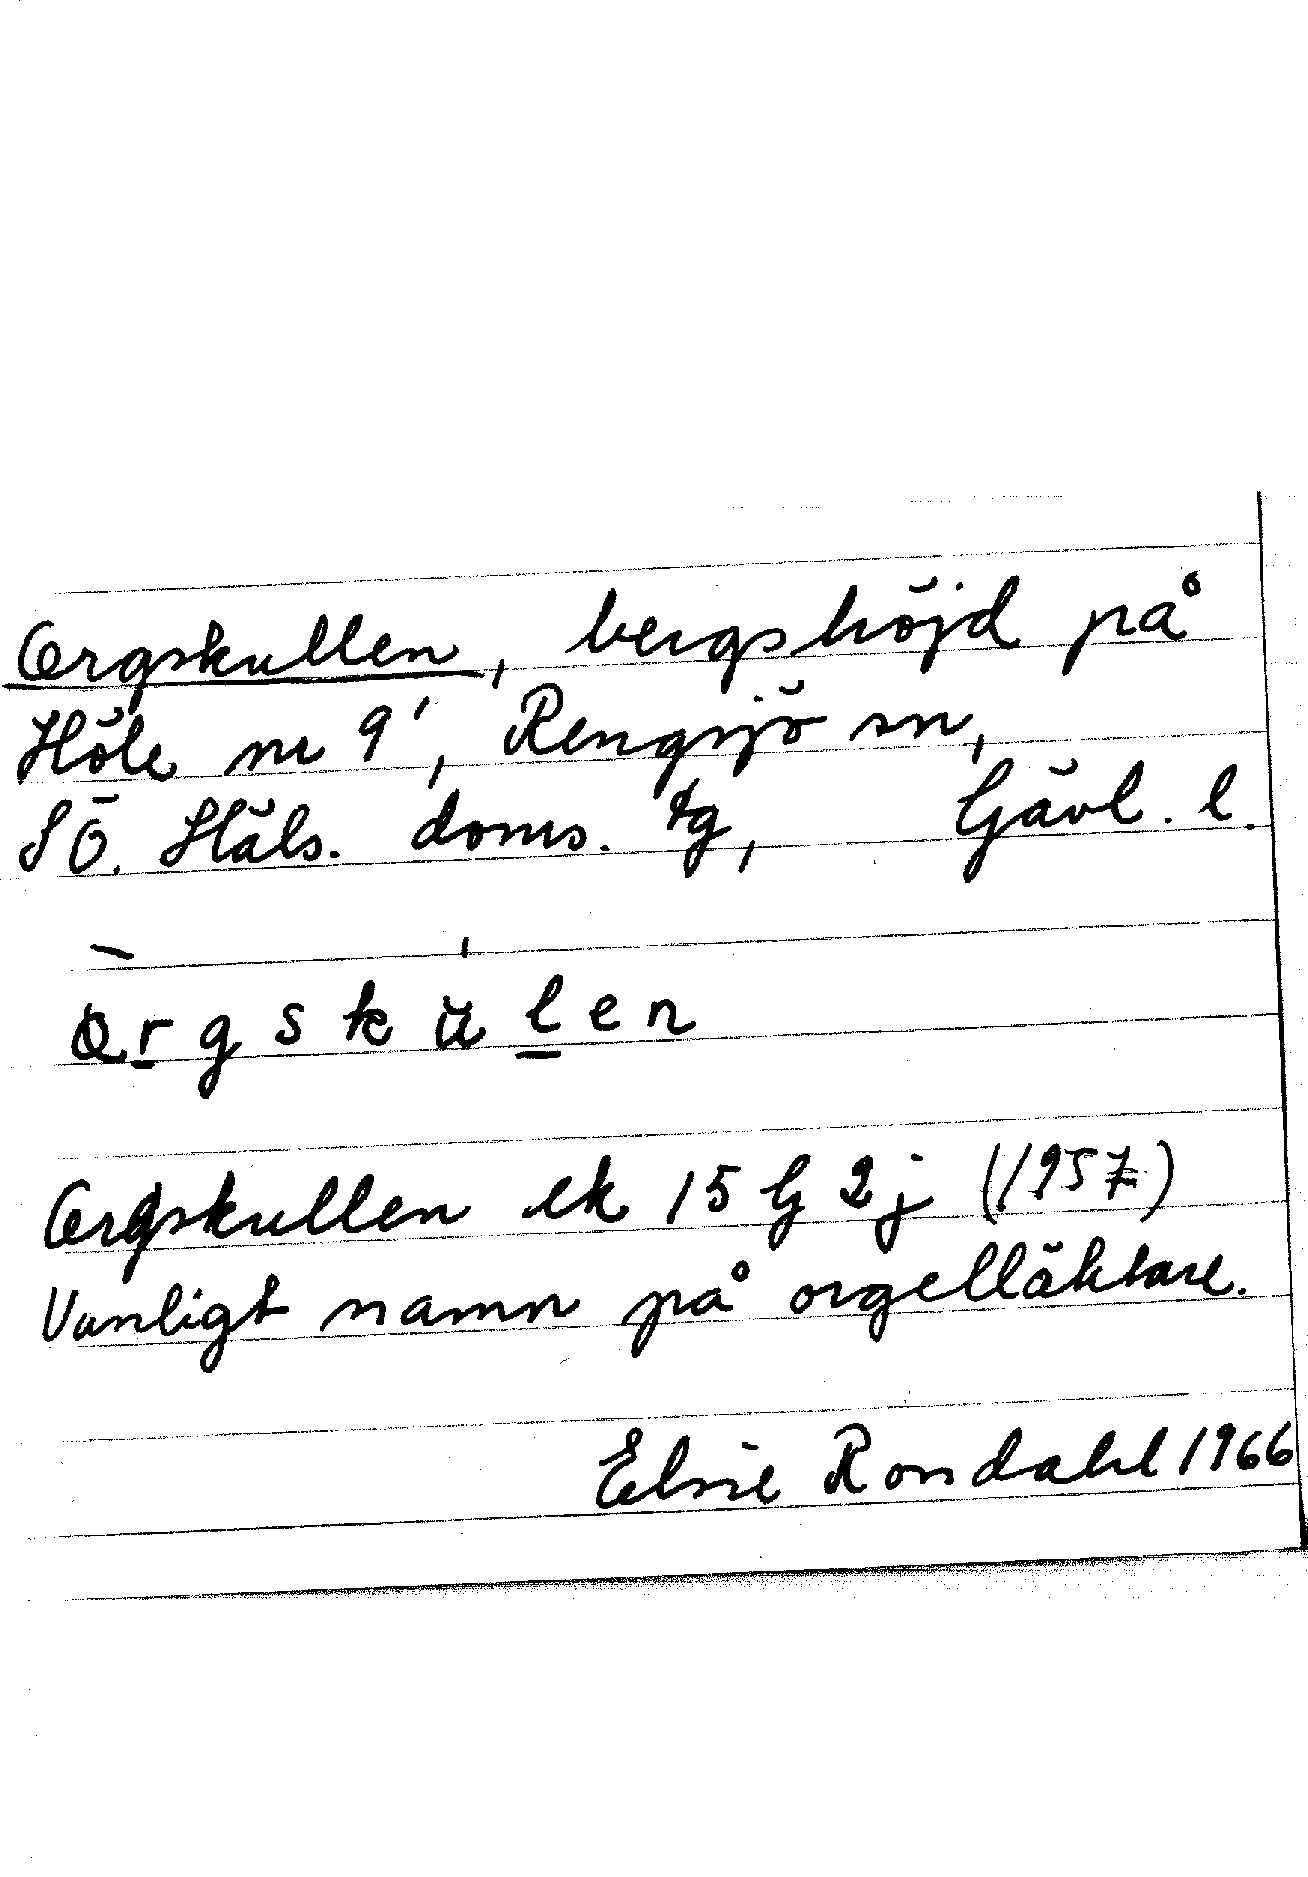 Orgskullen, bergshöjd på
Höle nr 9¹, Rengsjö sn,
SÖ. Häls. doms. tg, Gävl. l.
Orgskullen ek 15 G 2j (1957)
Vanligt namn på orgelläktare.
Elsie Rondahl 1966